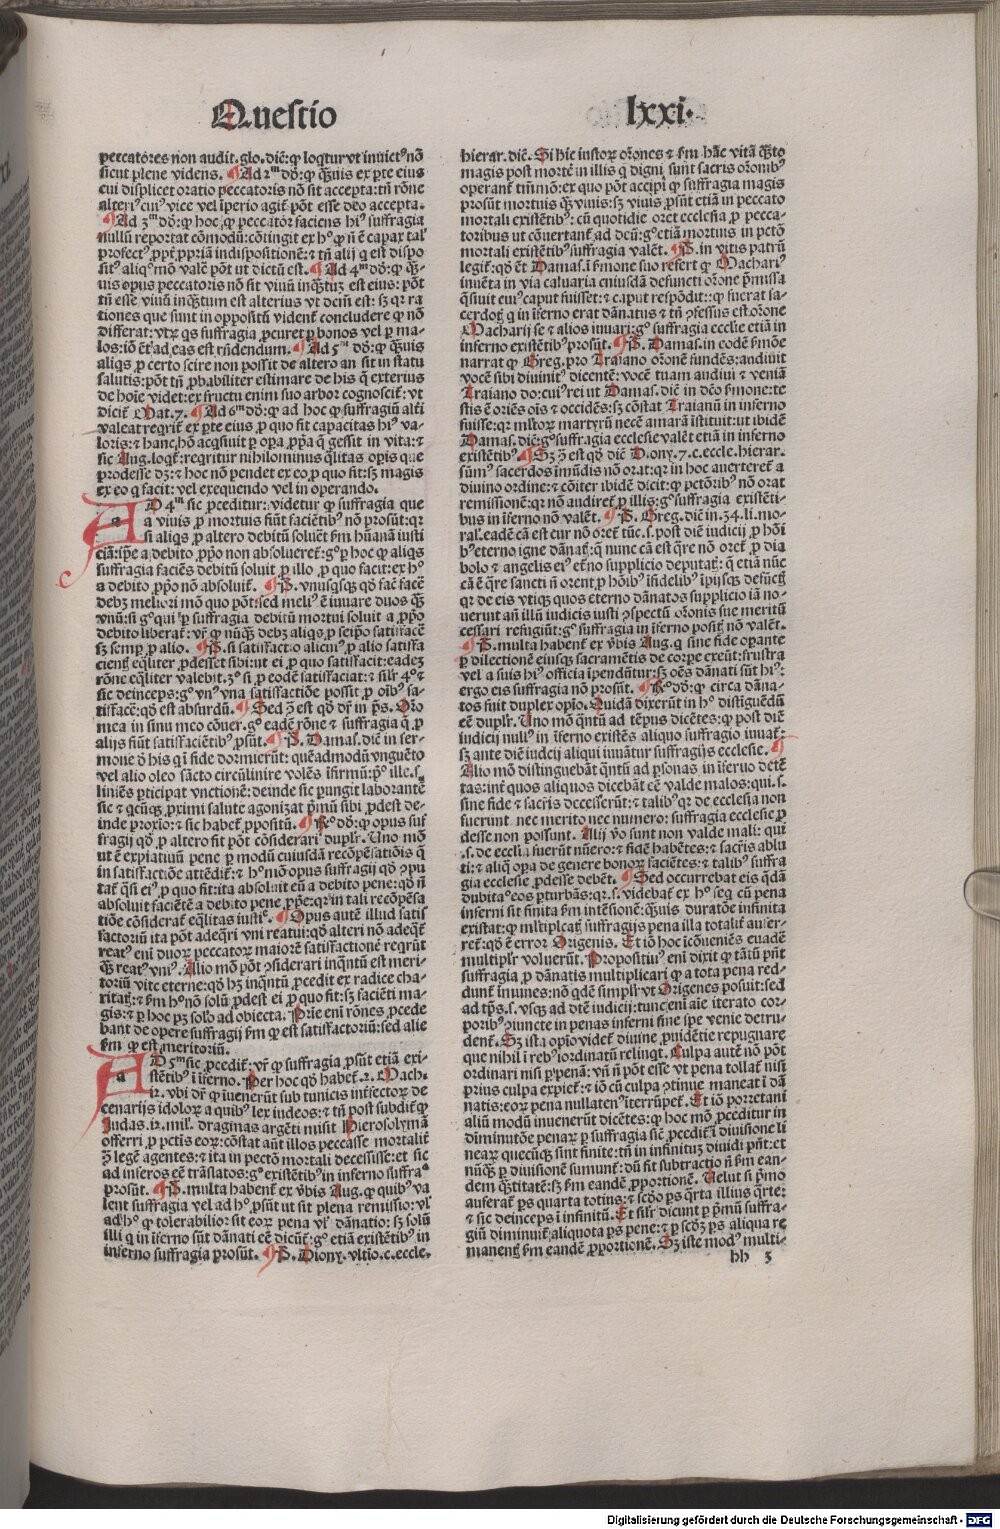 Questio lxxi.
peccatores non audit.glo.diē:ꝙ loqtur vt inuict⁹nō
sicut plene videns. Ad 2ᵐ dō:ꝙ ꝙ̄uis ex pte eius
cui displicet oratio peccatoris nō sit accepta:tn̄ rōne
alteri⁹cui⁹ vice vel īperio agit̄ pōt esse deo accepta.
Ad 3ᵐ dō:ꝙ hoc ꝙ peccatōr faciens hi⁹ suffragia
nullū reportat cōmodū:cōtingit ex h⁰ ꝙ nō ē capax tal̓
profect⁹ ꝓpt̄ ꝓpriā indispositionē:⁊ tn̄ alij q est dispo
sit⁹ aliq⁰mō valē pōt vt dictū est. Ad 4ᵐ dō:ꝙ ꝙ̄-
uis opus peccatoris nō sit viuū inq̄tū est eius: pōt
tn̄ esse viuū inq̄tum est alterius vt dcm̄ est: sꝫ qr ra
tiones que sunt in oppositū vident̄ concludere ꝙ nō
differat: vtꝝ qs suffragia ꝓcuret ꝑ bonos vel ꝑ ma-
los:iō et̄ ad eas est rn̄dendum. Ad 5ᵐ dō: ꝙ ꝙ̄uis
aliqs ꝓ certo scire non possit de altero an sit in statu
salutis:pōt tn̄ ꝓbabiliter estimare de his q̄ exterius
de hoīe videt:ex fructu enim suo arbor cognoscit̄: vt
dicit̄ Mat.7. Ad 6ᵐ dō: ꝙ ad hoc ꝙ suffragiū alt̄i
valeat reqrit̄ ex pte eius ꝓ quo fit capacitas hi⁹ va-
loris:⁊ hanc hō acqsiuit ꝑ oꝑa ꝓpa q̄ gessit in vita:⁊
sic Aug.loqt̄:reqritur nihilominus q̄litas opis que
prodesse dꝫ:⁊ hoc nō pendet ex eo ꝓ quo fit:sꝫ magis
ex eo q facit: vel exequendo vel in operando.
AD 4ᵐ sic ꝓceditur: videtur ꝙ suffragia que
a viuis ꝓ mortuis fiūt faciētib⁹ nō prosūt:qr
si aliqs ꝓ altero debitū soluēt ẜm hūanā iusti
ciā:ip̄e a debito ꝓpo non absolueret̄:g⁰ ꝑ hoc ꝙ aliqs
suffragia faciēs debitū soluit ꝓ illo ꝓ quo facit:ex h⁰
a debito ꝓpo nō absoluit̄. P̄. vnusqsqꝫ qō fac̄ facē
debꝫ meliori mō quo pōt:sed meli⁹ ē iuuare duos ꝙ̄
vnū:si g⁰qui ꝑ suffragia debitū mortui soluit a ꝓpo
debito liberat̄: vr̄ ꝙ nūq̄ debꝫ aliqs ꝓ seipo satisfacē
sꝫ semꝑ ꝓ alio. P̄. si satisfactio alicui⁹ ꝓ alio satisfa
cient̄ eq̄liter ꝓdesset sibi:ut ei ꝓ quo satisfacit:eadeꝫ
rōne eq̄liter valebit.3⁰ si ꝓ eodē satisfaciat:⁊ sil̓r 4⁰⁊
sic deinceps:g⁰ vn⁹ vna satisfactiōe possit ꝓ oīb⁹ sa-
tisfacē:qō est absurdū. Sed ꝯ̄ est qō dr̄ in ps̄. Oro
mea in sinu meo cōuer.g⁰ eadē rōne ⁊ suffragia q̄ ꝓ
alijs fiūt satisfaciētib⁹ ꝓsūt. P̄. Damas.diē in ser-
mone ō his q ī fide dormierūt: quēadmodū vnguēto
vel alio oleo sācto circūlinire volēs īfirmū:p⁰ ille.s.
liniēs ꝑticipat vnctionē:deinde sic pungit laborantē
sic ⁊ qcūqꝫ ꝓximi salute agonizat pmū sibi ꝓdest de-
inde proxīo:⁊ sic habet̄ ꝓpositū. R⁰ dō:ꝙ opus suf
fragij qō ꝓ altero fit pōt cōsiderari dupl̓r. Uno mō
ut ē expiatiuū pene ꝑ modū cuiusdā recōpēsatiōis q̄
in satisfactiōe attēdit̄:⁊ h⁰mō opus suffragij qō ꝯpu
tat̄ q̄si ei⁹ ꝓ quo fit:ita absoluit eū a debito pene:qō nō
absoluit faciētē a debito pene ꝓpe:qr in tali recōpēsa
tiōe cōsiderat̄ eq̄litas iustic̄. Opus autē illud satis
factoriū ita pōt adeq̄ri vni reatui:qō alteri nō adeq̄t̄
reat⁹ enī duoꝝ peccatoꝝ maiorē satisfactionē reqrūt
ꝙ̄ reat⁹ vni⁹. Alio mō pōt ꝯsiderari inq̄ntū est meri-
toriū vite eterne:qō hꝫ inq̄ntū ꝓcedit ex radice cha-
ritat̄:⁊ ẜm h⁰nō solū ꝓdest ei ꝓ quo fit:sꝫ faciēti ma-
gis:⁊ ꝑ hoc pꝫ solō ad obiecta. Prīe enī rōnes ꝓcede
bant de opere suffragij ẜm ꝙ est satisfactoriū:sed alie
ẜm ꝙ est meritoriū.
AD 5ᵐ sic ꝓcedit̄: vr̄ ꝙ suffragia ꝓsūt etiā exi-
stētib⁹ ī īferno. Per hoc qō habet̄.2. Mach.
12. vbi dr̄ ꝙ īuenerūt sub tunicis intfectoꝝ de
cenarijs idoloꝝ a quib⁹ lex iudeos:⁊ tn̄ post subdit̄ ꝙ
Judas.12.mil̓. dragmas argēti misit Hierosolymā
offerri ꝓ pctīs eoꝝ:cōstat aūt illos peccasse mortalit̄
ꝯ̄ legē agentes:⁊ ita in pectō mortali decessisse:et sic
ad inferos eē trāslatos:g⁰ existētib⁹ in inferno suffraᵃ
ꝓsūt. P̄.multa habent̄ ex v̄bis Aug.ꝙ quib⁹ va
lent suffragia vel ad h⁰ ꝓsūt ut sit plena remissio: vl̓
ad h⁰ ꝙ tolerabilior sit eoꝝ pena vl̓ dānatio: sꝫ solū
illi q in īferno sūt dānati cē dicūt̄:g⁰ etiā existētib⁹ in
inferno suffragia ꝓsūt. P̄. Diony.vltīo.c.eccle.
hierar.diē. Si hic instoꝝ orōnes ⁊ ẜm hāc vitā q̄sto
magis post mortē in illis q digni sunt sacris orōnib⁹
operant̄ tm̄mō:ex quo pōt accipi ꝙ suffragia magis
ꝓsūt mortuis ꝙ̄ viuis:sꝫ viuis ꝓsūt etiā in peccato
mortali existētib⁹: cū quotidie oret ecclesia ꝓ pecca-
toribus ut cōuertant̄ ad deū:g⁰etiā mortuis in pctō
mortali existētib⁹suffragia valēt. P̄. in vitis patrū
legit̄: qō et̄ Damas.ī ẜmone suo refert ꝙ Machari⁹
inuēta in via caluaria cuiusdā defuncti orōne p̄missa
q̄siuit cui⁹caput fuisset:⁊ caput respōdit:ꝙ fuerat sa-
cerdot̄ q in īferno erat dānatus ⁊ tn̄ ꝯfessus est orōne
Macharij se ⁊ alios iuuari:g⁰ suffragia ecclīe etiā in
inferno existētib⁹prosūt. P̄. Damas.in eodē ẜmōe
narrat ꝙ Greg.pro Traiano orōnē fundēs:audiuit
vocē sibi diuinit⁹ dicentē: vocē tuam audiui ⁊ veniā
Traiano do:cui⁹rei ut Damas.diē in dc̄o ẜmone:te
stis ē oriēs oīs ⁊ occidēs:sꝫ cōstat Traianū in inferno
fuisse:qr ml̓toꝝ martyrū necē amarā īstituit:ut ibidē
Damas.diē:g⁰suffragia ecclesie valēt etiā in inferno
existētib⁹. Sꝫ ꝯ̄ est qō diē Diony.7.c.eccle.hierar.
sūm⁹ sacerdos īmūdis nō orat:qr in hoc auerteret̄ a
diuino ordine:⁊ cōiter ibidē dicit:ꝙ pctōrib⁹ nō orat
remissionē:qr nō audiret̄ ꝓ illis:g⁰suffragia existēti-
bus in īferno nō valēt. P̄. Greg. diē in.34.li.mo-
ral̓.eadē cā est cur nō oret̄ tūc.s.post diē iudicij ꝓ hōī
b⁹eterno igne dānat̄:q̄ nunc cā est q̄re nō oret̄ ꝓ dia
bolo ⁊ angelis ei⁹ et̄no supplicio deputat̄: q̄ etiā nūc
cā ē q̄re sancti n̄ orent̄ ꝓ hōib⁹ īfidelib⁹ īpijsqꝫ defūct̄
qr de eis vtiqꝫ quos eterno dānatos supplicio iā no-
uerunt añ illū iudicis iusti ꝯspectū orōnis sue meritū
cessari refugiūt:g⁰ suffragia in īferno posit̄ nō valēt.
P̄.multa habent̄ ex v̄bis Aug. q sine fide oꝑante
ꝑ dilectionē eiusqꝫ sacramētis de corpe exeūt:frustra
vel a suis hi⁹ officia īpendūtur:sꝫ oēs dānati sūt hi⁹:
ergo eis suffragia nō ꝓsūt. R⁰dō:ꝙ circa dāna-
tos fuit duplex opīo. Quidā dixerūt in h⁰ distiguēdū
eē dupl̓r. Uno mō q̄ntū ad tēpus dicētes: ꝙ post diē
iudicij null⁹ in īferno existēs aliquo suffragio iuuat̄:
sꝫ ante diē iudicij aliqui iuuātur suffragijs ecclesie.
Alio mō distinguebāt q̄ntū ad ꝑsonas in īferno detē
tas:int̄ quos aliquos dicebāt cē valde malos:qui.s.
sine fide ⁊ sacris decesserūt:⁊ talib⁹qr de ecclesia non
fuerunt nec merito nec numero: suffragia ecclesie ꝓ
desse non possunt. Alij v̄o sunt non valde mali: qui
.s.de ecclīa fuerūt nūero:⁊ fidē habētes:⁊ sacris ablu
ti:⁊ aliq̄ oꝑa de genere bonoꝝ faciētes:⁊ talib⁹ suffra
gia ecclesie ꝓdesse debēt. Sed occurrebat eis q̄dā
dubitaᵒeos ꝑturbās:qr.s. videbat̄ ex h⁰ seq cū pena
inferni sit finita ẜm intēsionē:ꝙ̄uis duratōe infinita
existat:ꝙ ml̓tiplicat̄ suffragijs pena illa totalit̄ aufer-
ret̄:qō ē error Origenis. Et iō hoc īcōueniēs euadē
multipl̓r voluerūt. Propositiu⁹ enī dixit ꝙ tātū pn̄t
suffragia ꝓ dānatis multiplicari ꝙ a tota pena red-
dunt̄ īmunes:nō q̄dē simpl̓r ut Origenes posuit:sed
ad tp̄s.s. vsqꝫ ad diē iudicij:tunc enī aīe iterato cor-
porib⁹ ꝯiuncte in penas inferni sine spe venie detru-
dent̄. Sꝫ ista opīo videt̄ diuine ꝓuidētie repugnare
que nihil ī reb⁹ iordinatū relinqt. Culpa autē nō pōt
ordinari nisi ꝑ penā: vn̄ n̄ pōt esse vt pena tollat̄ nisi
prius culpa expiet̄:⁊ iō cū culpa ꝯtinue maneat ī dā
natis:eoꝝ pena nullaten⁹īterrūpet̄. Et iō porretani
aliū modū inuenerūt dicētes:ꝙ hoc mō ꝓceditur in
diminutōe penaꝝ ꝑ suffragia sicᵗ ꝓcedit̄ ī diuisione li
neaꝝ quecūqꝫ sunt finite:tn̄ in infinituꝫ diuidi pn̄t:et
nūq̄ ꝑ diuisionē sumunt̄:dū fit subtractio nō ẜm ean-
dem q̄titatē:sꝫ ẜm eandē ꝓportionē. Uelut si pmo
auferat̄ ps q̄rta totius:⁊ scd̄o ps q̄rta illius q̄rte:
⁊ sic deinceps ī infinitū. Et sil̓r dicunt ꝑ pmū suffra-
giū diminuit̄ aliquota ps pene:⁊ ꝑ scd̄ꝫ ps aliqua re
manent̄ ẜm eandē ꝓportionē. Sꝫ iste mod⁹ multi-
hh 3
Digitalisierung gefördert durch die Deutsche Forschungsgemeinschaft - DFG